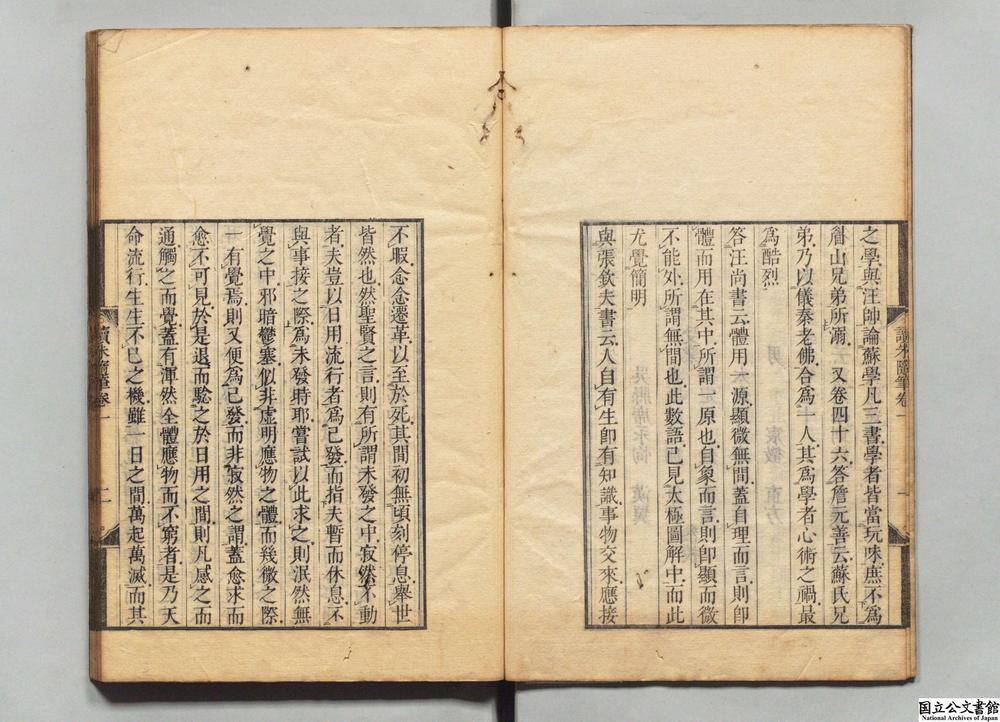 之學與汪帥論蘇學凡三書學者皆當玩味庶不爲
眉山兄弟所溺又卷四十六答詹元善云蘇氏兄
弟乃以儀秦老佛合爲一人其爲學者心術之禍最
爲酷烈
答汪尚書云體用一源顯微無間蓋自理而言則卽
體而用在其中所謂一原也自象而言則卽顯而微
不能外所謂無間也此數語已見太極圖解中而此
尤覺簡明
與張欽夫書云人自有生卽有知識事物交來應接
讀朱隨筆卷一
一
不暇念念遷革以至於死其間初無頃刻停息舉世
皆然也然聖賢之言則有所謂未發之中寂然不動
者夫豈以日用流行者爲已發而指夫暫而休息不
與事接之際爲未發時耶嘗試以此求之則泯然無
覺之中邪暗鬱塞似非虛明應物之體而幾微之際
一有覺焉則又便爲已發而非寂然之謂蓋愈求而
愈不可見於是退而驗之於日用之間則凡感之而
通觸之而覺蓋有渾然全體應物而不窮者是乃天
命流行生生不已之機雖一日之間萬起萬滅而其
讀朱隨筆卷一
二
国立公文書館
National Archives of Japan